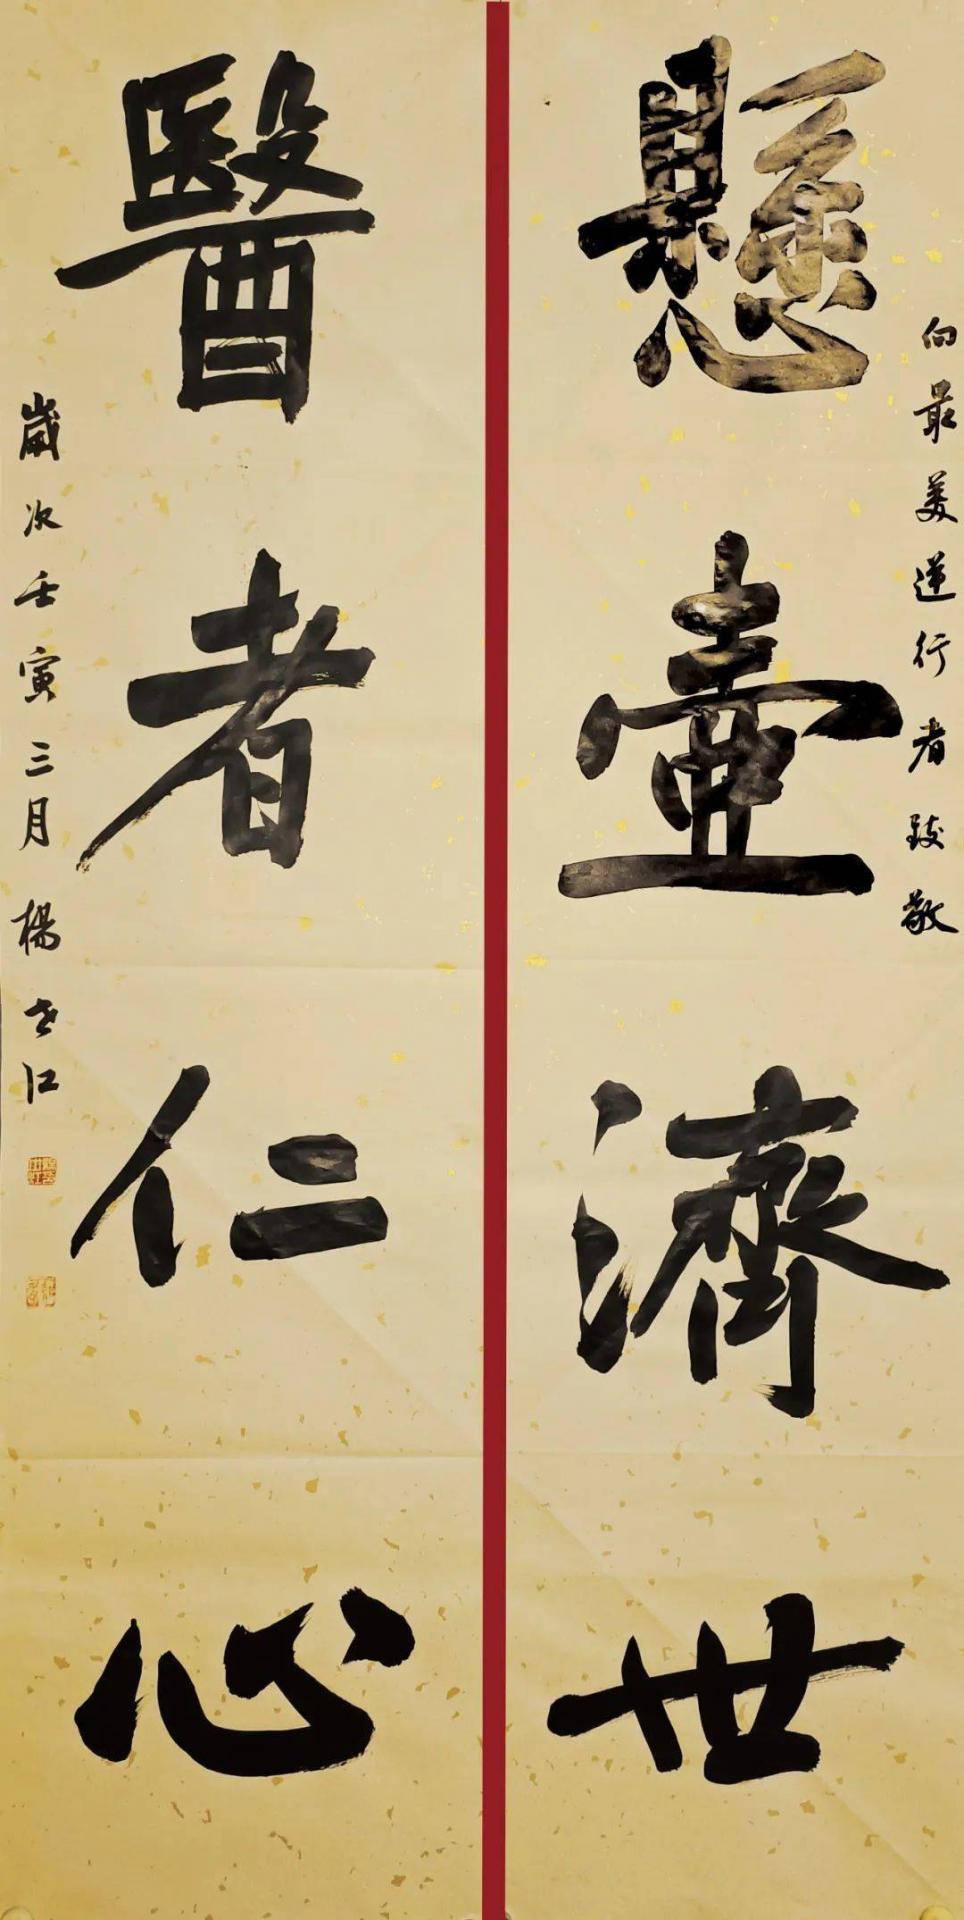 向最美逆行者致敬
懸壺濟世
醫者仁心
歲次壬寅三月楊世江